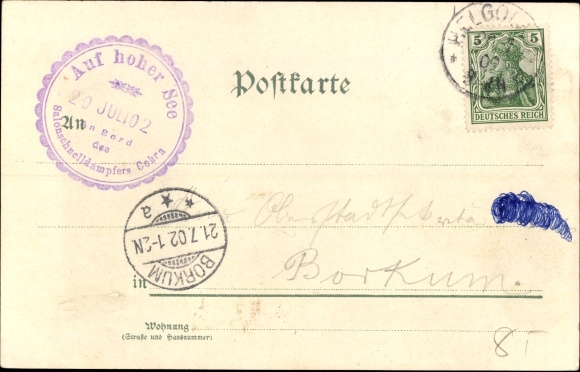 Auf hoher See
20 JULI 02
an Bord
des
Salonschnelldampfers Cobra
Postkarte
HELGOL
5 5
DEUTSCHES REICH
An
BORKUM
21.7.02.1-2N
* * a
Borkum.
in
Wohnung
(Straße und Hausnummer)
8